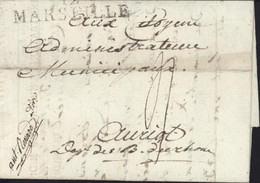 MARSEILLE
Aux Citoyens
Administrateurs
Municipaux
Auriol
Dept des B. du rhone